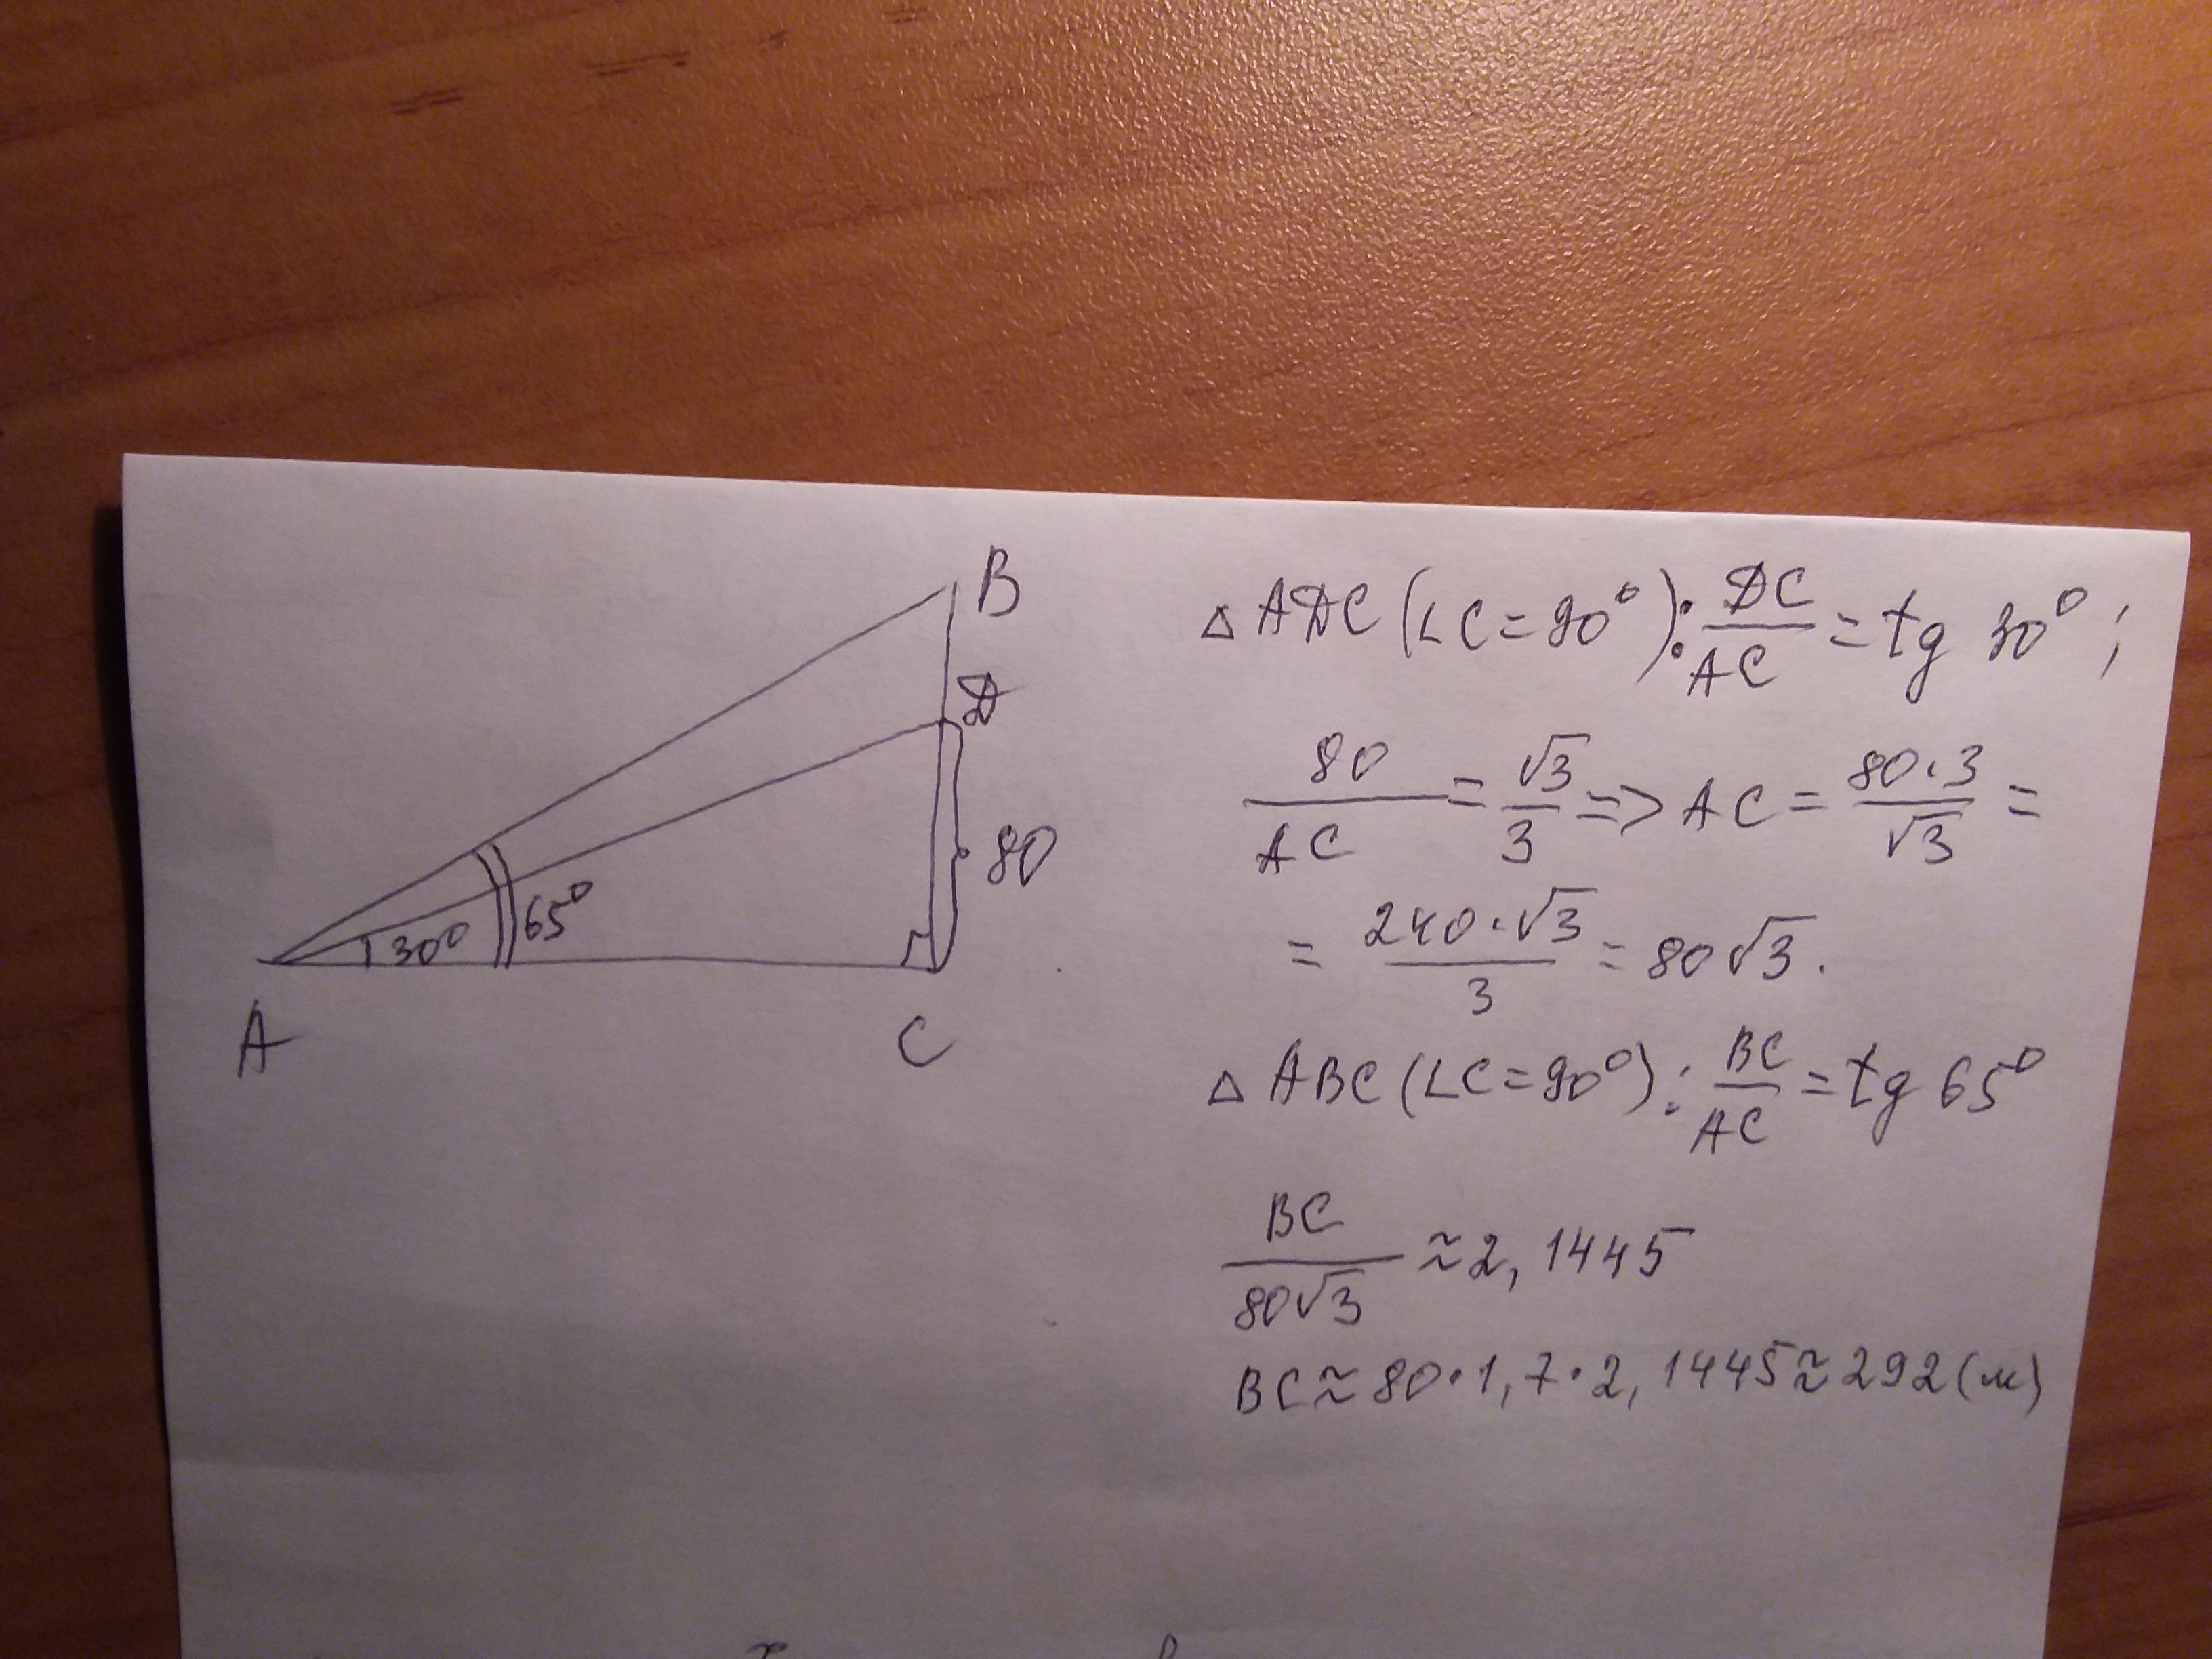 B
D
80
30°
65°
A
C
△ ADC (∠C = 90°): DC/AC = tg 30°;
80/AC = √3/3 => AC = 80·3/√3 =
= 240·√3/3 = 80√3.
△ ABC (∠C = 90°): BC/AC = tg 65°
BC/80√3 ≈ 2,1445
BC ≈ 80·1,7·2,1445 ≈ 292 (м)